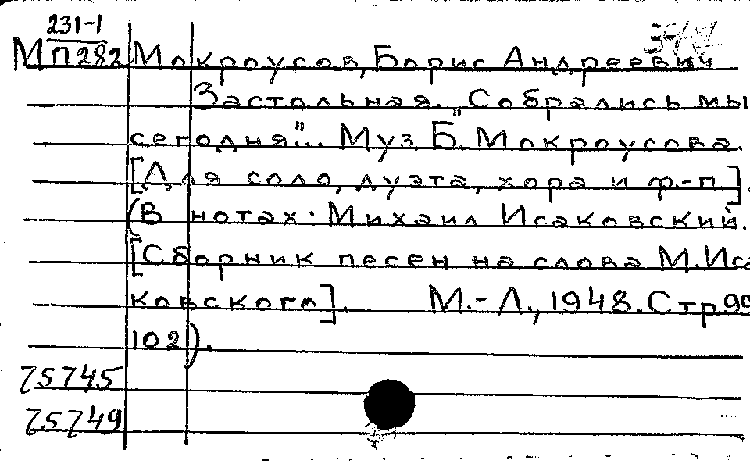 231-1
МП282 Мокроусов, Борис Андреевич
Застольная. "Собрались мы
сегодня"... Муз. Б. Мокроусова.
[Для соло, дуэта, хора и ф.-п.].
(В нотах: Михаил Исаковский.
[Сборник песен на слова М.Иса
ковского]. М.-Л., 1948. Стр. 99
102).
75745
75749